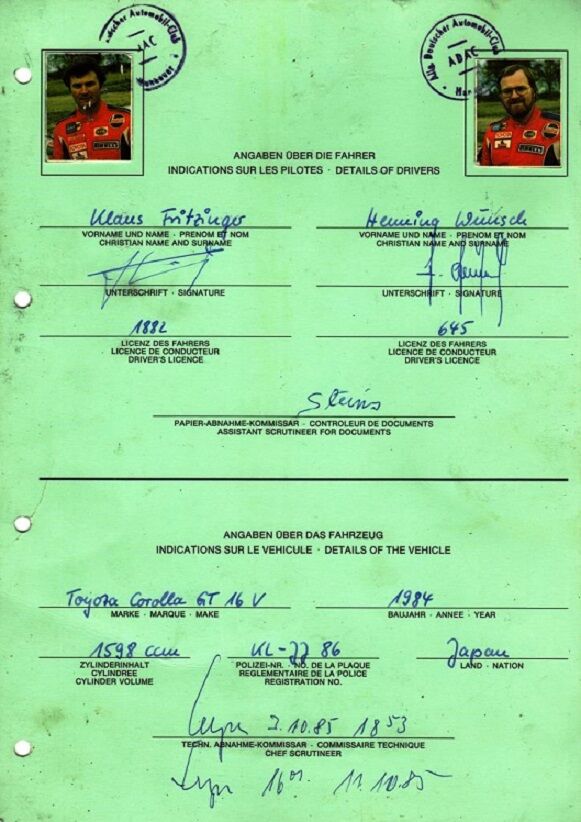 Allg. Deutscher Automobil-Club
ADAC
Deutscher Automobil-Club
ADAC
Hannover
ANGABEN ÜBER DIE FAHRER
INDICATIONS SUR LES PILOTES · DETAILS OF DRIVERS
Klaus Fritzinger Henning Wünsch
VORNAME UND NAME · PRENOM ET NOM VORNAME UND NAME · PRENOM ET NOM
CHRISTIAN NAME AND SURNAME CHRISTIAN NAME AND SURNAME
UNTERSCHRIFT · SIGNATURE UNTERSCHRIFT · SIGNATURE
1882 645
LICENZ DES FAHRERS LICENZ DES FAHRERS
LICENCE DE CONDUCTEUR LICENCE DE CONDUCTEUR
DRIVER'S LICENCE DRIVER'S LICENCE
PAPIER-ABNAHME-KOMMISSAR · CONTROLEUR DE DOCUMENTS
ASSISTANT SCRUTINEER FOR DOCUMENTS
ANGABEN ÜBER DAS FAHRZEUG
INDICATIONS SUR LE VEHICULE · DETAILS OF THE VEHICLE
Toyota Corolla GT 16 V 1984
MARKE · MARQUE · MAKE BAUJAHR · ANNEE · YEAR
1598 ccm KL-JJ 86 Japan
ZYLINDERINHALT POLIZEI-NR. · NO. DE LA PLAQUE LAND · NATION
CYLINDREE REGLEMENTAIRE DE LA POLICE
CYLINDER VOLUME REGISTRATION NO.
10.85 18 53
TECHN. ABNAHME-KOMMISSAR · COMMISSAIRE TECHNIQUE
CHEF SCRUTINEER
11.10.85